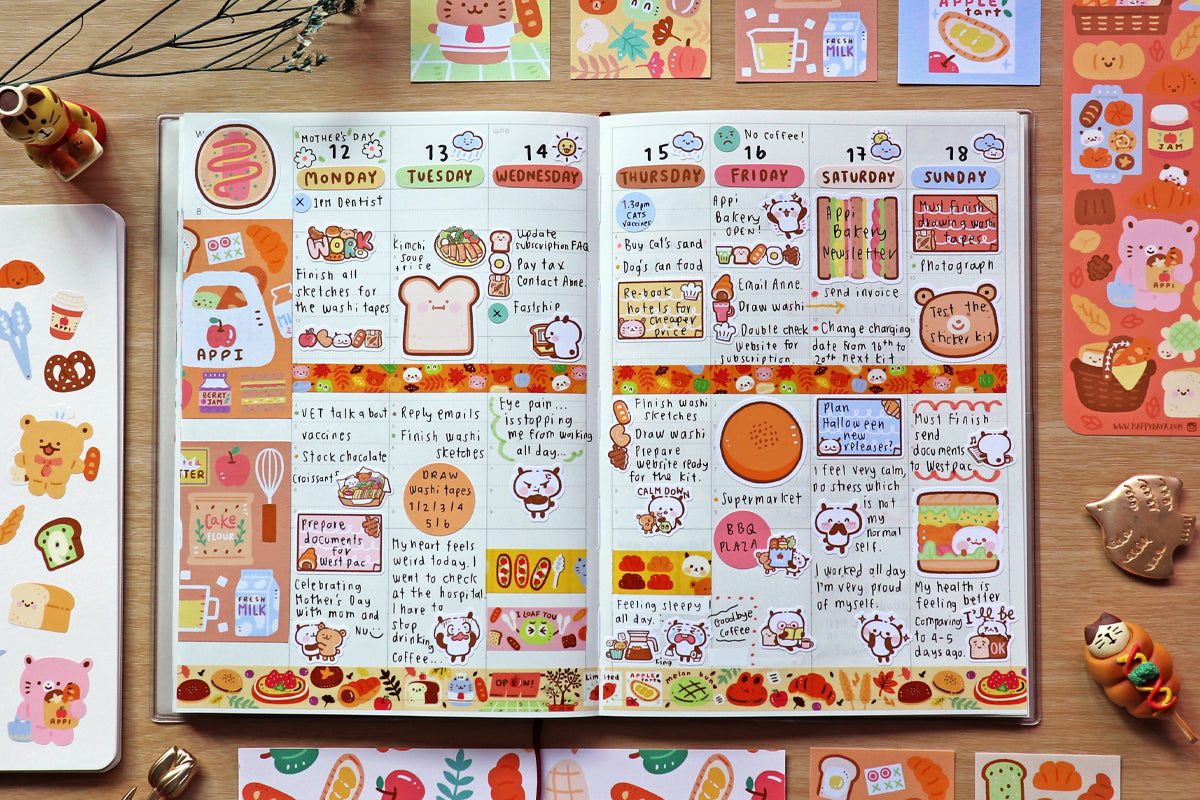 APPLE
tart
FRESH
MILK
JAM
APPI
WWW.HAPPYDAYA.COM
APPI
APPI
MOTHER'S DAY
12
MONDAY
X 1PM Dentist
WORK
Finish all
sketches for
the washi tapes
VET talk about
vaccines
Stock chocolate
croissant
Prepare
documents
for
Westpac
Celebrating
Mother's Day
with mom and
NU
APPI
BERRY
JAM
Cake
FLOUR
FRESH
MILK
13
TUESDAY
kimchi
soup
+ rice
Reply emails
Finish washi
sketches
DRAW
washi tapes
1/2/3/4
5/6
My heart feels
weird today. I
went to check
at the hospital.
I have to
stop
drinking
coffee...
14
WEDNESDAY
update
subscription FAQ
Pay tax
Contact Anne.
X Fastship
Eye pain...
is stopping
me from working
all day...
I LOAF YOU
OPEN!
15
THURSDAY
1.30pm
CATS
vaccines
Buy cat's sand
Dog's can food
Re-book
hotels for
cheaper
price
Finish washi
sketches
Draw washi
Prepare
website ready
for the kit.
CALM DOWN
Feeling sleepy
all day.
Limited
APPLE
tart
melon bun
No coffee!
16
FRIDAY
Appi
Bakery
OPEN!
Email Anne.
Draw washi
Double check
website for
subscription.
Supermarket
BBQ
PLAZA
Goodbye
coffee
17
SATURDAY
Appi
Bakery
Newsletter
send invoice
Change charging
date from 16th to
20th next kit
Plan
Halloween
new
releases?
I feel very calm,
no stress which
is not
my
normal
self.
I worked all day
I'm very proud
of myself.
18
SUNDAY
Must finish
drawing washi
tapes
Photograph
Test the
sticker kit
Must Finish
send
documents
to Westpac
My health is
feeling better
comparing
to 4-5
days ago.
I'll be
OK